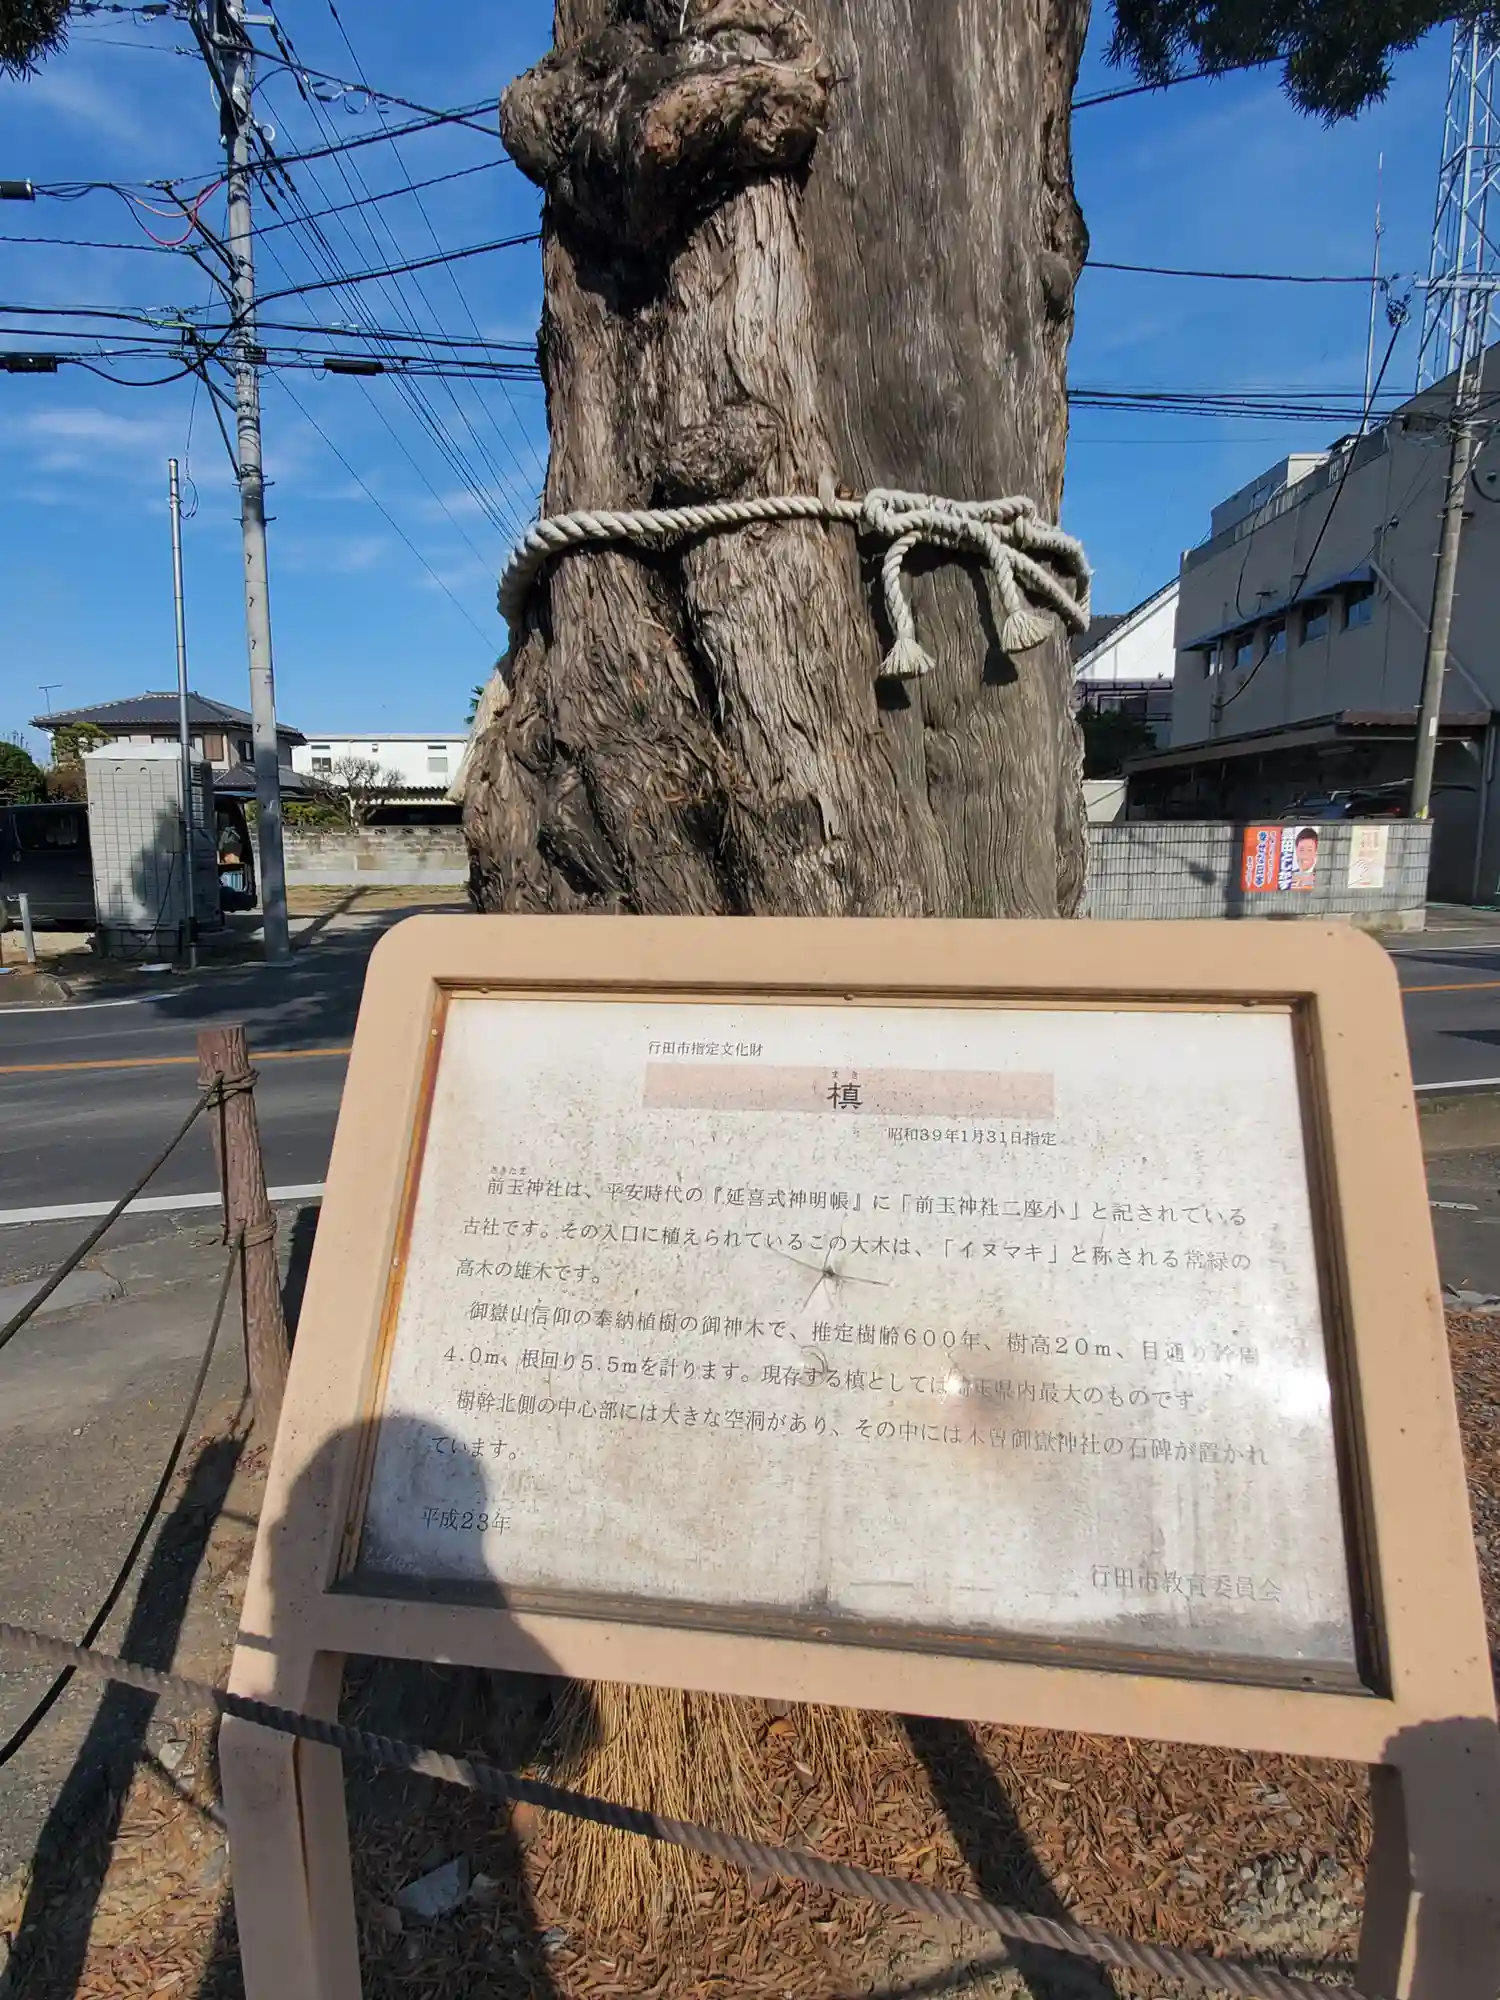 行田市指定文化財
まき
槙
昭和39年1月31日指定
さきたま
前玉神社は、平安時代の『延喜式神明帳』に「前玉神社二座小」と記されている
古社です。その入口に植えられているこの大木は、「イヌマキ」と称される常緑の
高木の雄木です。
御嶽山信仰の奉納植樹の御神木で、推定樹齢600年、樹高20m、目通り幹周
4.0m、根回り5.5mを計ります。現存する槙としては埼玉県内最大のものです。
樹幹北側の中心部には大きな空洞があり、その中には木曽御嶽神社の石碑が置かれ
ています。
平成23年
行田市教育委員会